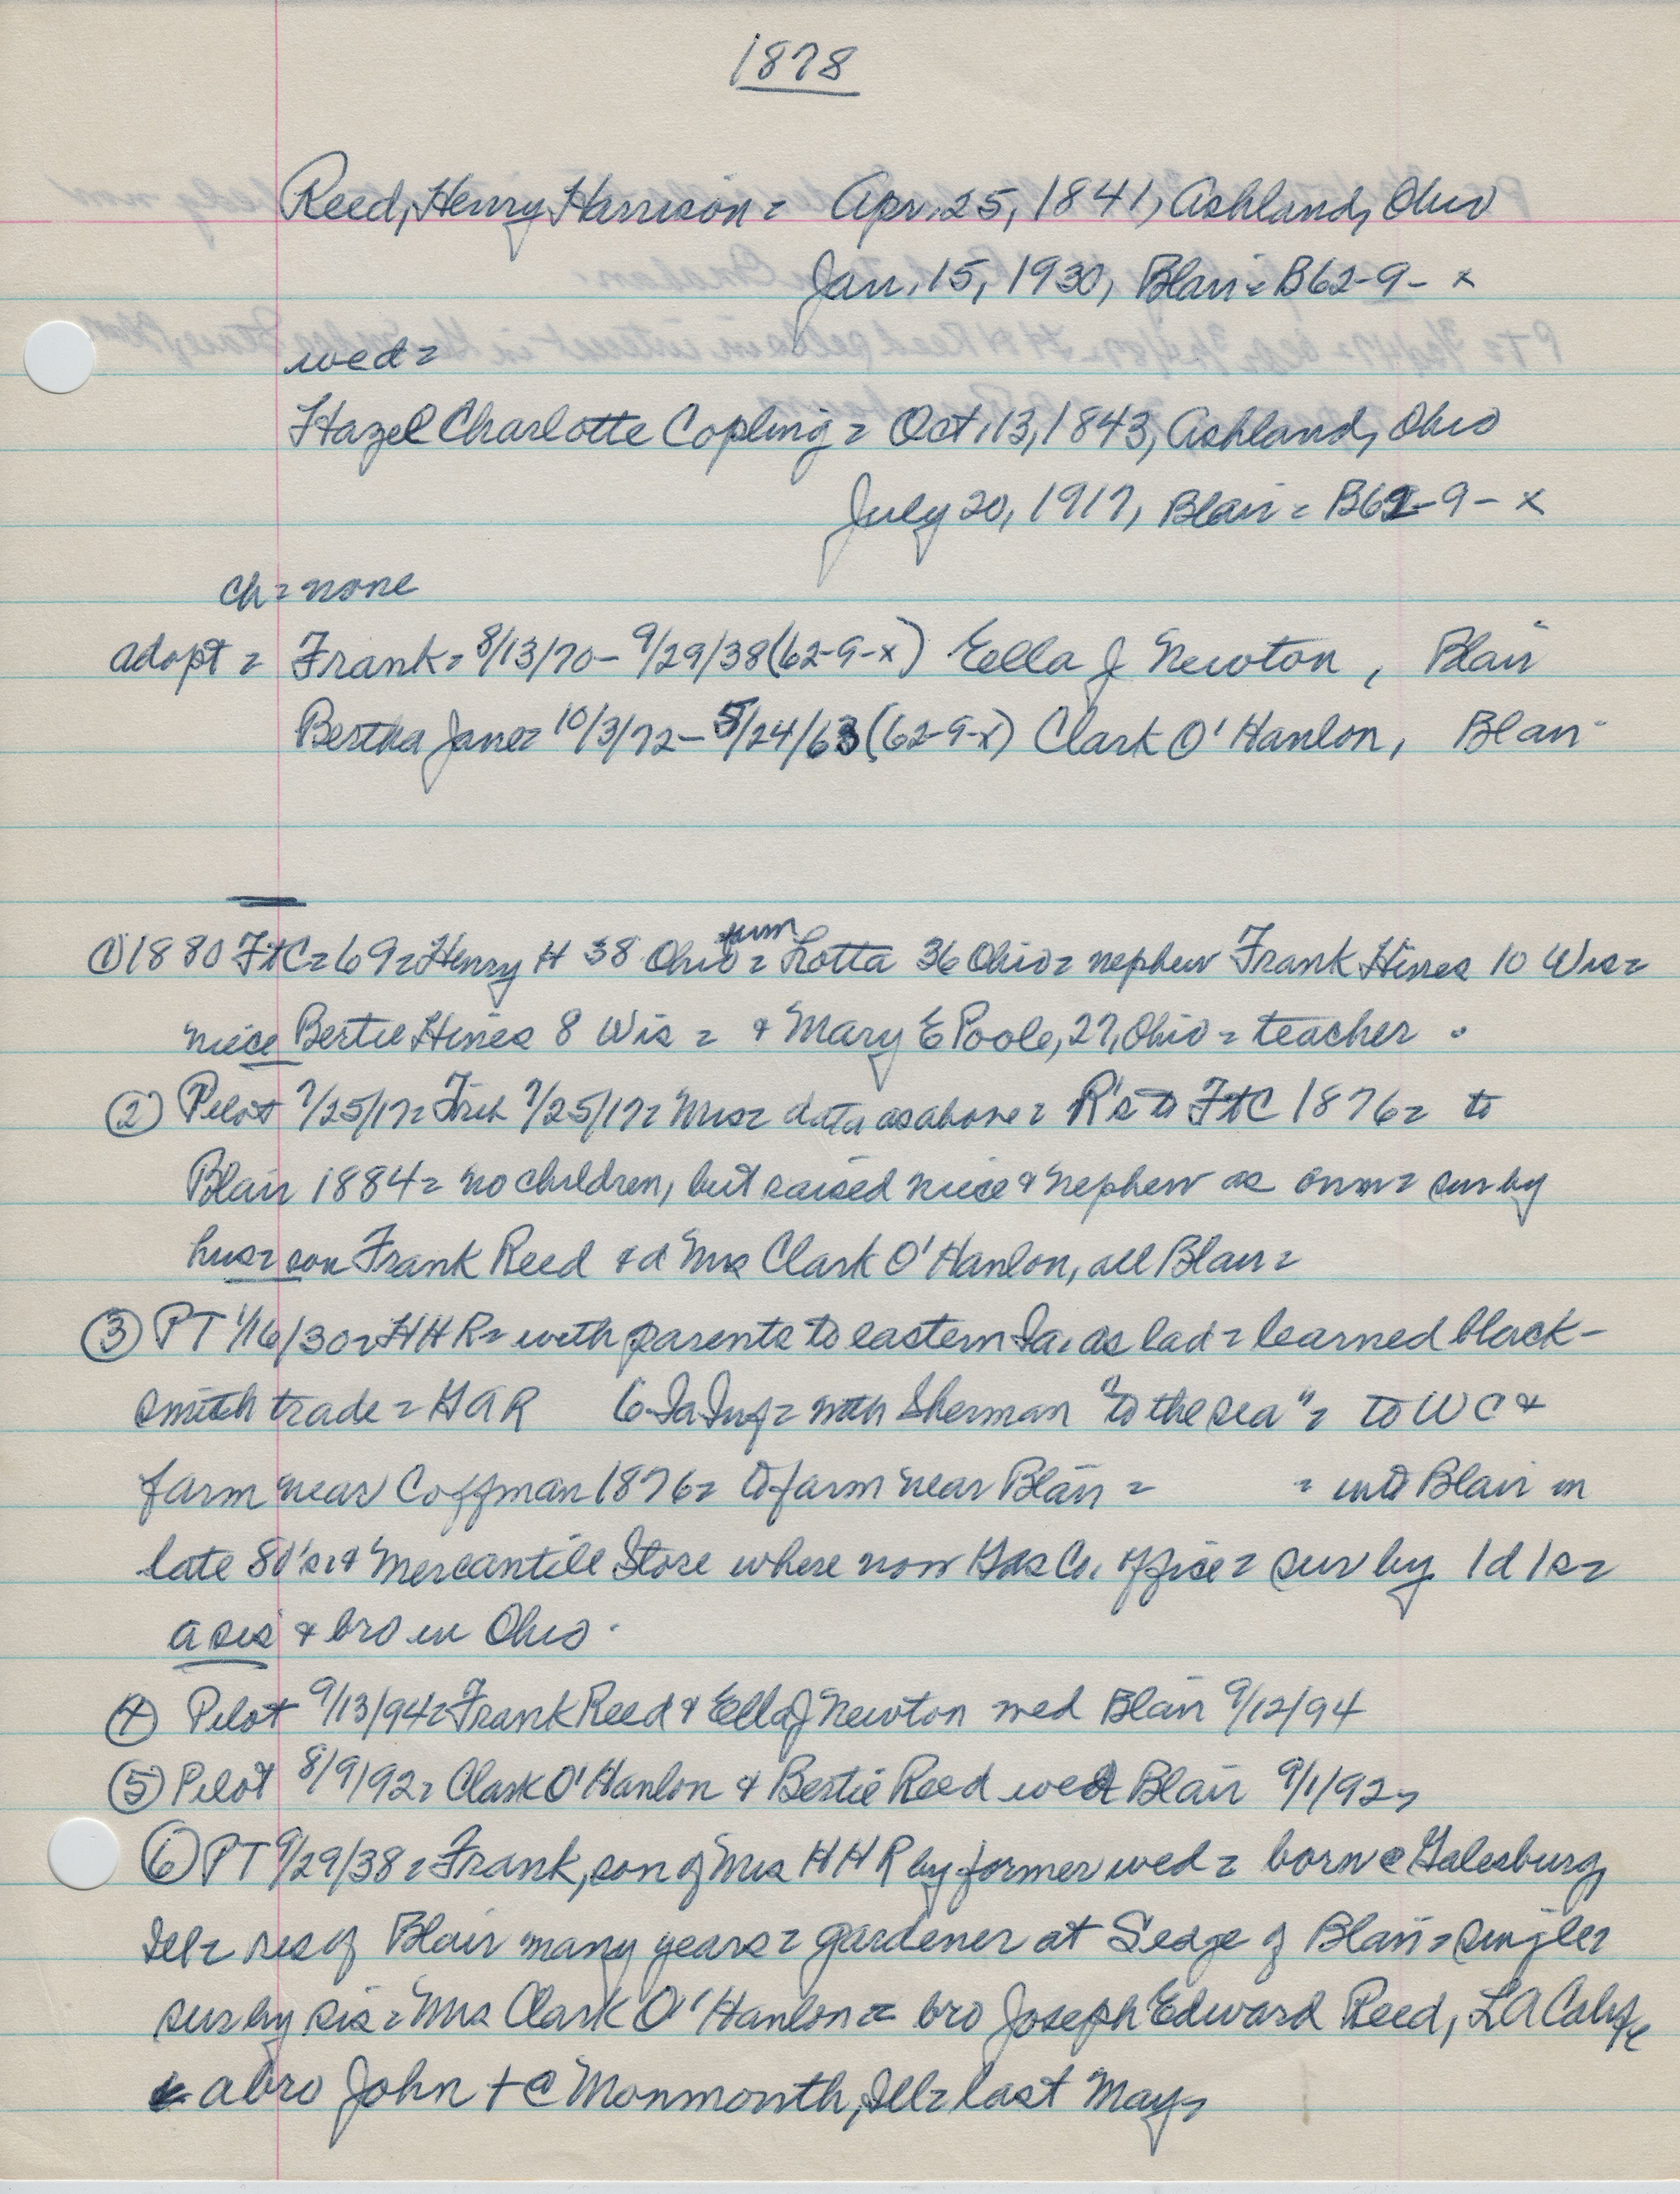 1878
Reed, Henry Harrison = Apr. 25, 1841, Ashland, Ohio
Jan. 15, 1930, Blair = B62-9-x
wed =
Hazel Charlotte Copling = Oct. 13, 1843, Ashland, Ohio
July 20, 1917, Blair = B62-9-x
ch = none
adopt = Frank = 8/13/70 - 9/29/38 (62-9-x) Eella J Newton, Blair
Bertha Jane = 10/3/72 - 5/24/63 (62-9-x) Clark O'Hanlon, Blair
① 1880 FtC = 69 = Henry H 38 Ohio = Lotta 36 Ohio = nephew Frank Hines 10 Wis =
niece Bertie Hines 8 Wis = & Mary E Poole, 27, Ohio = teacher.
② Pilot 7/25/17 = Trib 7/25/17 = Mrs = data as above = R's to FtC 1876 = to
Blair 1884 = no children, but raised niece & nephew as own = sur by
hus = son Frank Reed & d Mrs Clark O'Hanlon, all Blair =
③ PT 1/16/30 = HHR = with parents to eastern Ia. as lad = learned black-
smith trade = GAR 6 Ia Inf = with Sherman "to the sea" = to WC &
farm near Coffman 1876 = to farm near Blair = = into Blair in
late 80's & Mercantile Store where now Gas Co. office = sur by 1d 1s =
a sis & bro in Ohio.
④ Pilot 9/13/94 = Frank Reed & Ella J Newton wed Blair 9/12/94
⑤ Pilot 8/9/92 = Clark O'Hanlon & Bertie Reed wed Blair 9/1/92 =
⑥ PT 9/29/38 = Frank, son of Mrs HHR by former wed = born @ Galesburg,
Ill = res of Blair many years = gardener at Sedge of Blair = single =
sur by sis = Mrs Clark O'Hanlon = bro Joseph Edward Reed, LA Calif =
a bro John + @ Monmonth, Ill = last May =